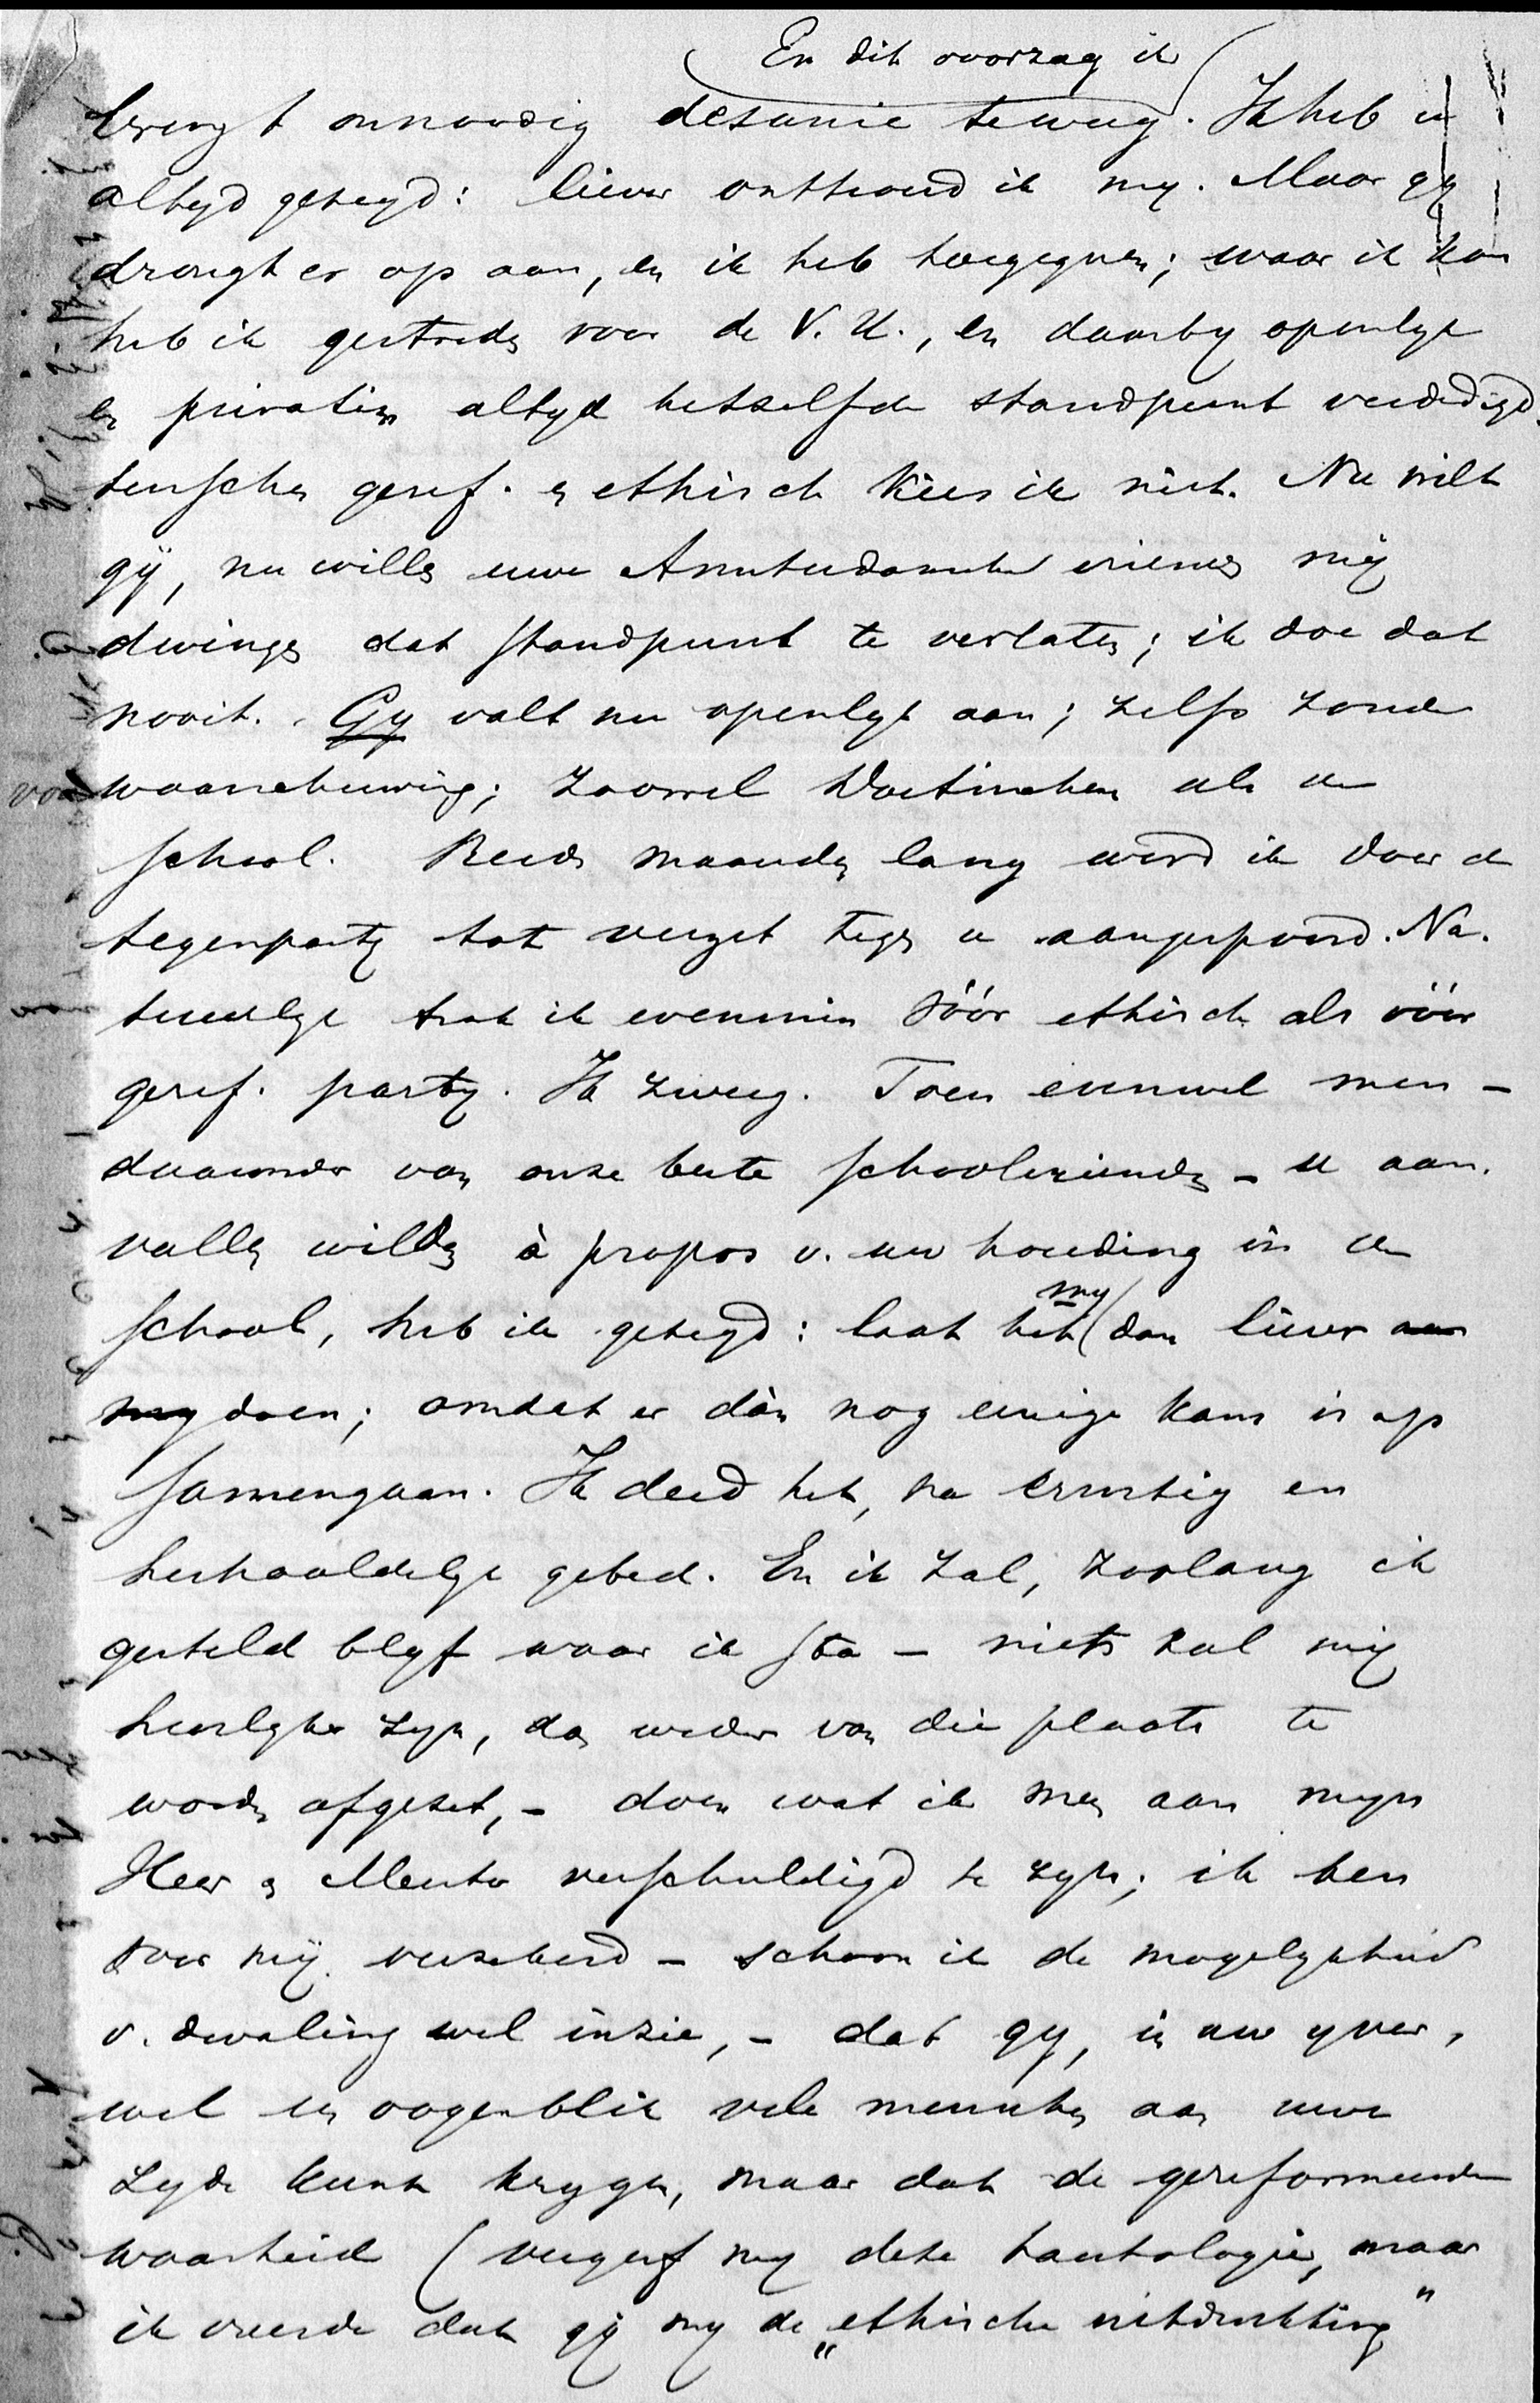 En dit voorzag ik
brengt onnoodig désunie teweeg. Ik heb u
altyd gezegd: liever onthoud ik my. Maar gy
drongt er op aan, en ik heb toegegeven; waar ik kon
heb ik gestreden voor de V.U., en daarby openlyk
en privatim altyd hetzelfde standpunt verdedigd.
tusschen geref. en ethisch kies ik niet. Nu wilt
gÿ, nu willen uwe Amsterdamsche vrienden mÿ
dwingen dat standpunt te verlaten; ik doe dat
nooit. Gy valt nu openlyk aan; zelfs zonder
voorwaarschuwing; zoowel Doetinchem als de
school. Reeds maanden lang werd ik door de
tegenparty tot verzet tegen u aangespoord. Na-
tuurlyk trok ik evenmin vóór ethisch als vóór
geref. party. Ik zweeg. Toen evenwel men –
daaronder van onze beste schoolvrienden – u aan-
vallen wilden à propos v. uw houding in de
school, heb ik gezegd: laat het my dan liever aan
my doen; omdat er dàn nog eenige kans is op
samengaan. Ik deed het, na ernstig en
herhaaldelyk gebed. En ik zal, zoolang ik
gesteld blyf waar ik sta – niets zal mÿ
heerlyker zyn, dan weder van die plaats te
worden afgezet, – doen wat ik meen aan myn
Heer en Meester verschuldigd te zyn; ik ben
voor mÿ verzekerd – schoon ik de mogelykheid
v. dwaling wel inzie, – dat gy, in uw yver,
wel een oogenblik vele menschen aan uwe
zyde kunt krygen, maar dat de gereformeerde
waarheid (vergeef my deze tautologie, maar
ik vreesde dat gÿ my de „ethische uitdrukking"